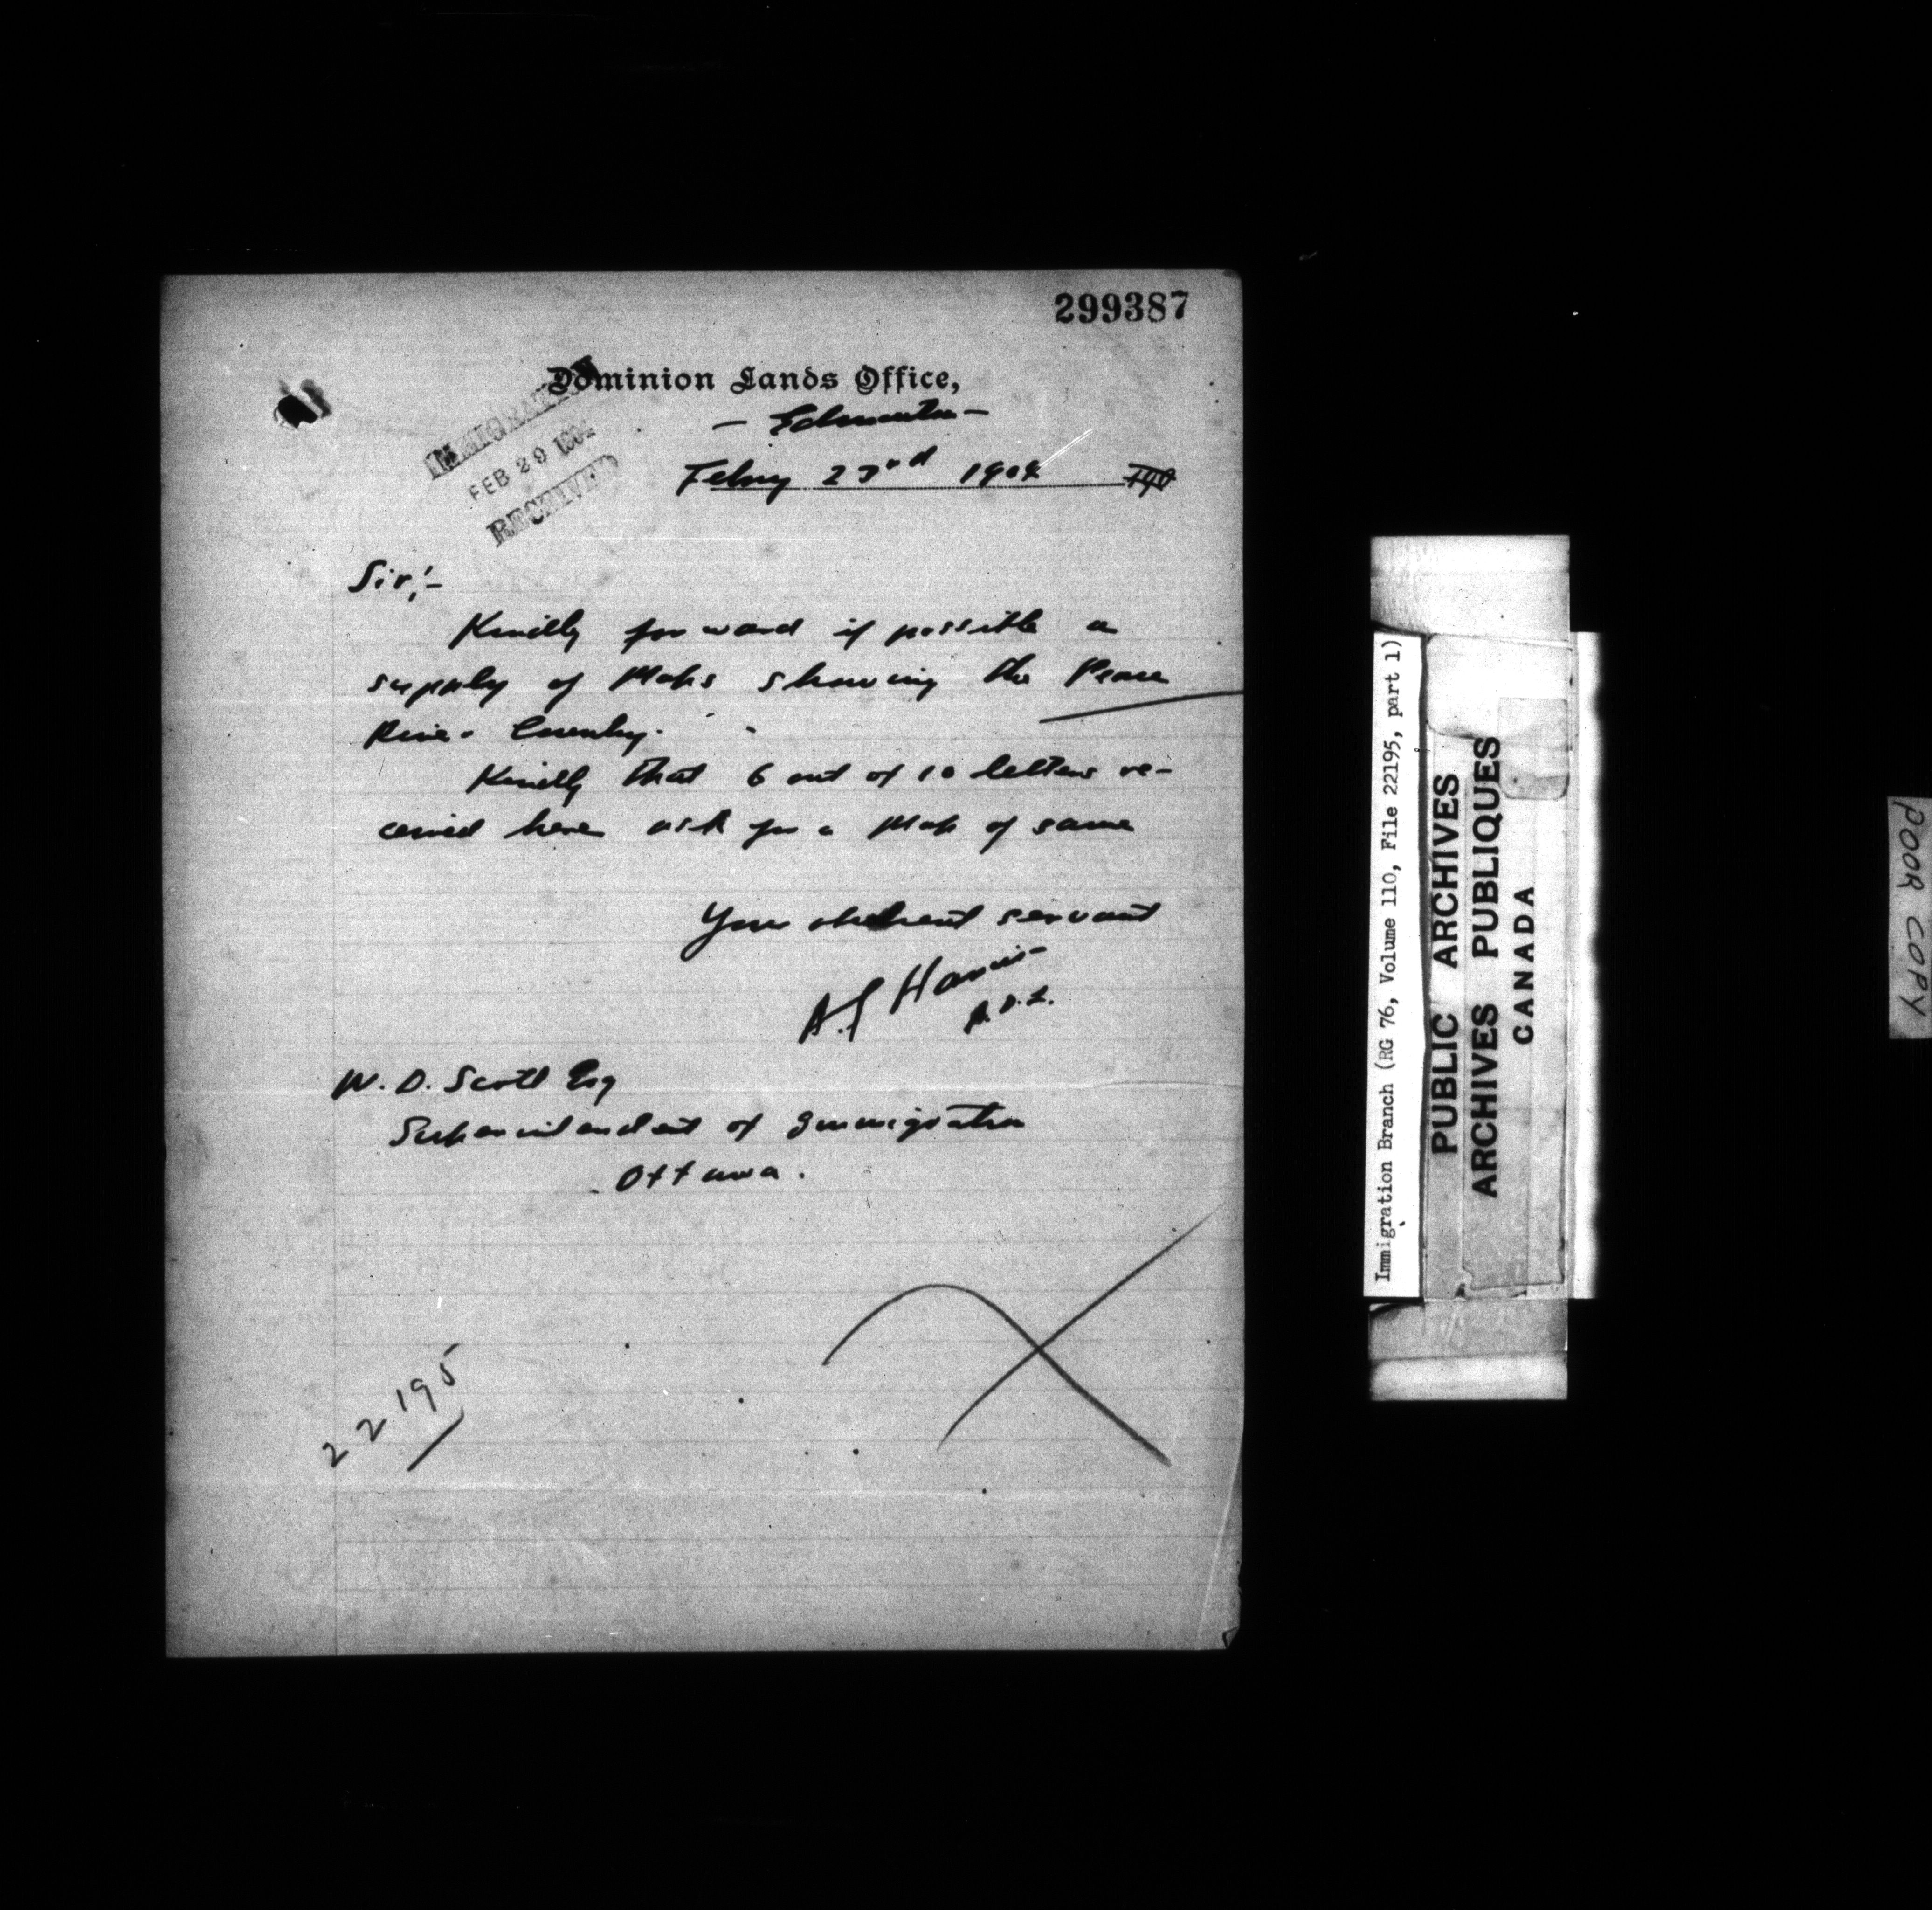 299387
Dominion Lands Office,
- Edmonton -
Febry 23rd 1904
IMMIGRATION
FEB 29 1904
RECEIVED
Sir;-
Kindly forward if possible a
supply of Maps showing the Peace
River Country.
Kindly that 6 out of 10 letters re-
ceived here ask for a Map of same
Your obedient servant
A.G Harrison
W. D. Scott Esq
Superintendent of Immigration
Ottawa.
22195
Immigration Branch (RG 76, Volume 110, File 22195, part 1)
PUBLIC ARCHIVES
ARCHIVES PUBLIQUES
CANADA
POOR COPY